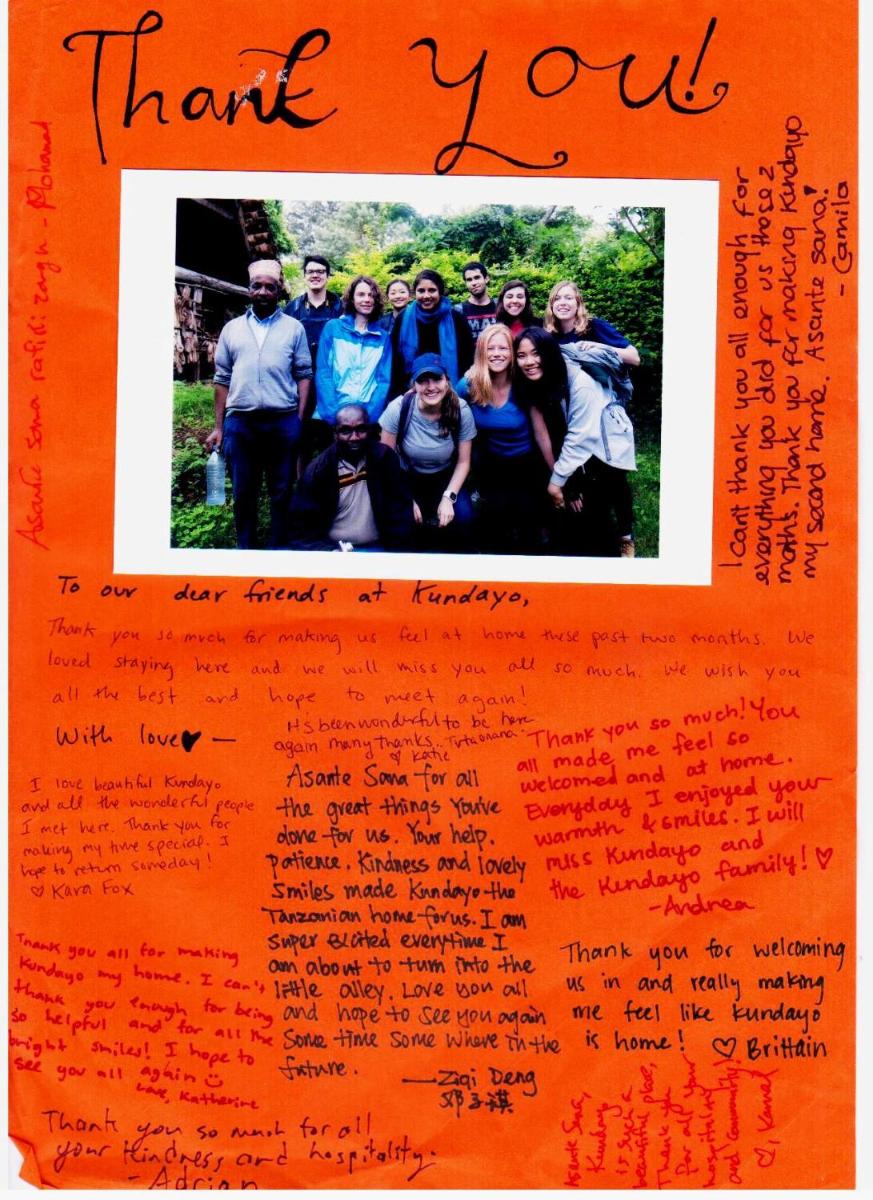 Thank you!
Asante Sana rafiki zangu - Mohamad
I cant thank you all enough for
everything you did for us those 2
moths. Thank you for making Kundayo
my second home. Asante Sana!
- Camila
To our dear friends at Kundayo,
Thank you so much for making us feel at home these past two months. We
loved staying here and we will miss you all so much. We wish you
all the best and hope to meet again!
With love ♥ —
It's been wonderful to be here
again many thanks. Tutaonana.
♡ Katie
I love beautiful Kundayo
and all the wonderful people
I met here. Thank you for
making my time special. I
hope to return someday!
♡ Kara Fox
Asante Sana for all
the great things You've
done for us. Your help,
patience, Kindness and lovely
Smiles made Kundayo the
Tanzanian home for us. I am
super Excited everytime I
am about to turn into the
little alley. Love you all
and hope to see you again
Some time Some where in the
future.
— Ziqi Deng
邓子祺
Thank you so much! You
all made me feel so
welcomed and at home.
Everyday I enjoyed your
warmth & smiles. I will
miss Kundayo and
the Kundayo family! ♡
- Andrea
Thank you all for making
Kundayo my home. I can't
thank you enough for being
so helpful and for all the
bright smiles! I hope to
see you all again ☺
Love, Katherine
Thank you for welcoming
us in and really making
me feel like Kundayo
is home! ♡ Brittain
Thank you so much for all
your kindness and hospitality.
- Adrian
Asante Sana,
Kundayo
is such a
beautiful place,
Thank you
for all your
hospitality
and community!